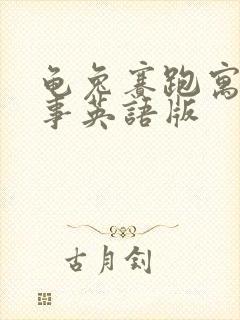 龟兔赛跑寓
事英語版
古月钊